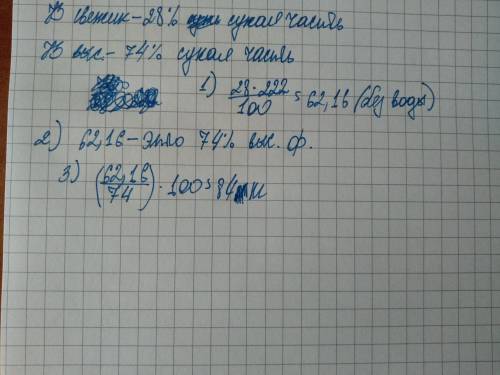 В свежих - 28% сухая часть
В выс. - 74% сухая часть
1) 28·222/100 = 62,16 (без воды)
2) 62,16 - это 74% выс. ф.
3) (62,16/74)·100 = 84 кг